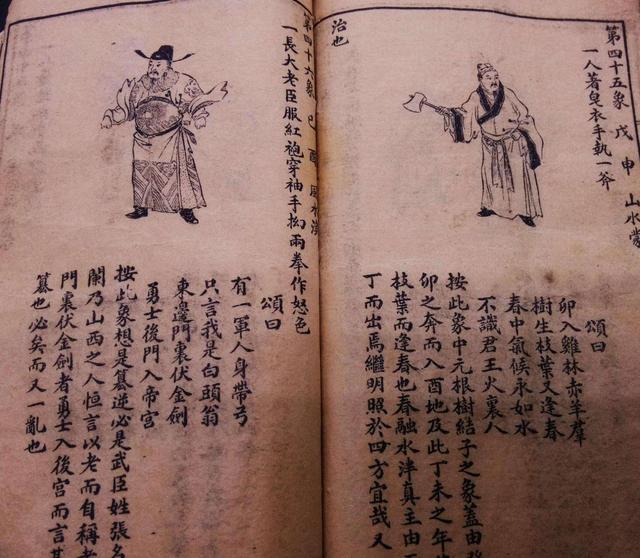 第四十五象 戊申 山水蒙
一人著皂衣手執一斧
頌曰
卯入雞林赤羊羣
樹生枝葉又逢春
春中氣候永如水
不識君王火裏人
按此象中元根樹結子之象蓋由
卯之奔而入酉地及此丁未之年
枝葉而逢春也春融水泮真主由
丁而出焉繼明照於四方宜哉又
治也
第四十六象 己酉 風水渙
一長大老臣服紅袍穿袖手拗兩拳作怒色
頌曰
有一軍人身帶弓
只言我是白頭翁
東邊門裏伏金劍
勇士後門入帝宮
按此象想是篡逆必是武臣姓張名
闌乃山西之人恒言以老而自稱者
門裏伏金劍者勇士入後宮而言其
篡也必矣而又一亂也